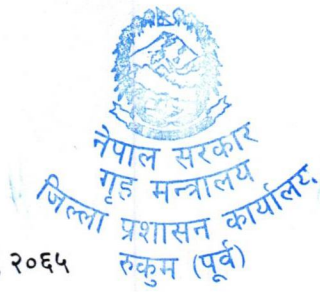 नेपाल सरकार
गृह मन्त्रालय
जिल्ला प्रशासन कार्यालय
रुकुम (पूर्व)
२०६५